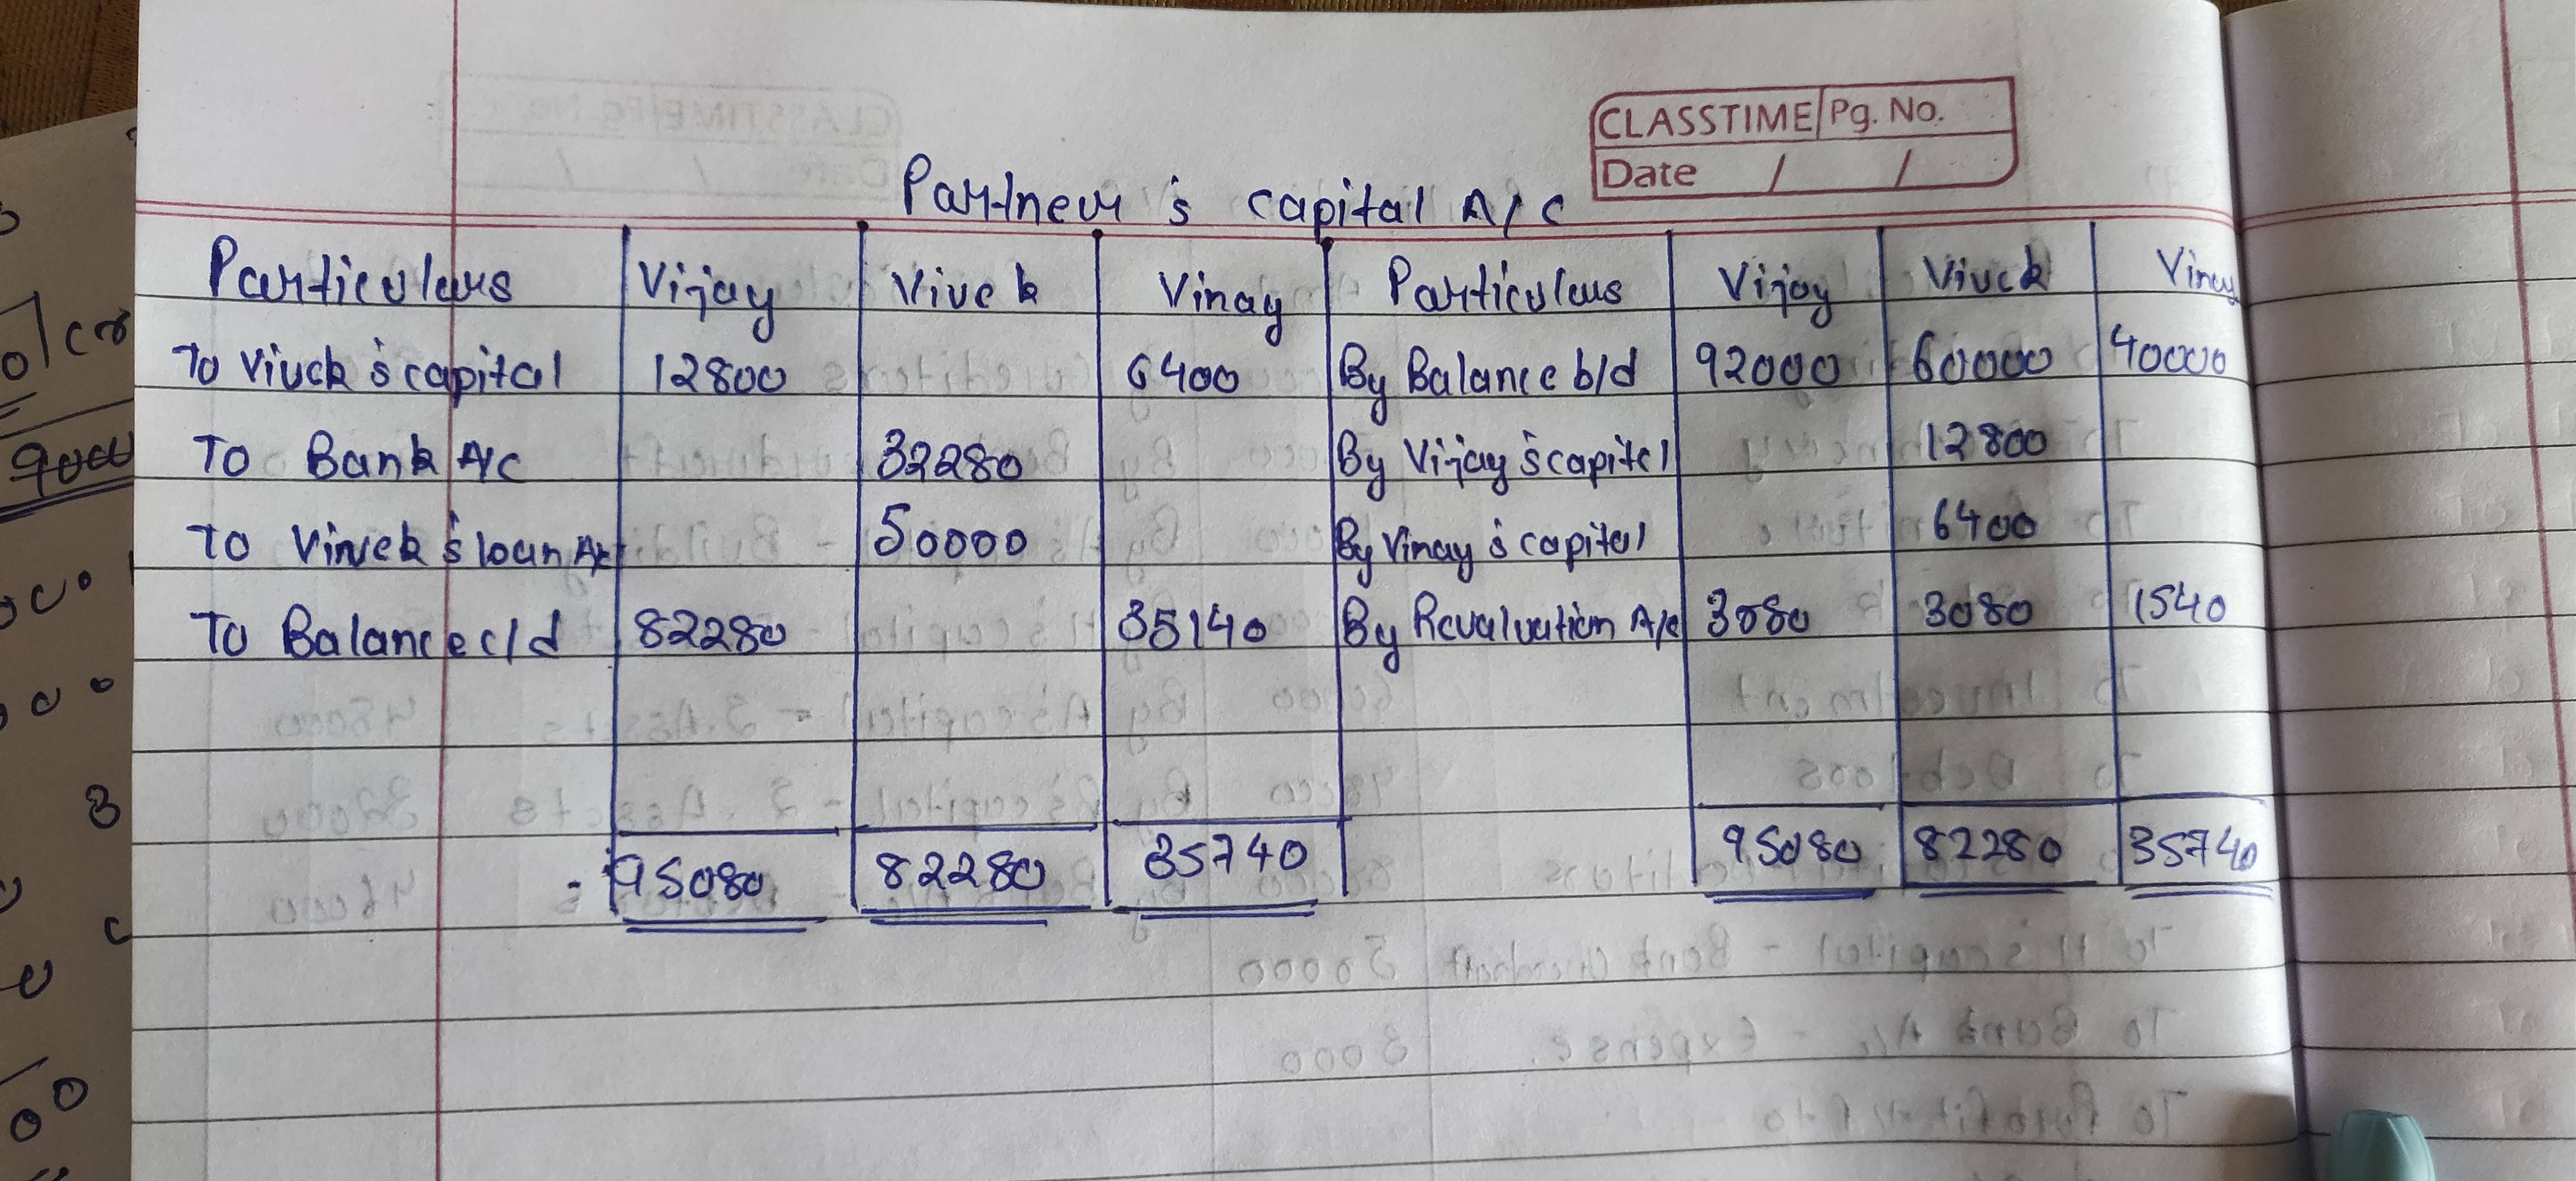 CLASSTIME Pg. No.
Date / /
Partner's capital A/C
Particulars Vijay Vivek Vinay Particulars Vijay Vivek Vinay
To Vivek's capital 12800 6400 By Balance b/d 92000 60000 40000
To Bank A/C 32280 By Vijay's capital 12800
To Vivek's loan A/c 50000 By Vinay's capital 6400
To Balance c/d 82280 35140 By Revaluation A/c 3080 3080 1540
95080 82280 35740 95080 82280 35740